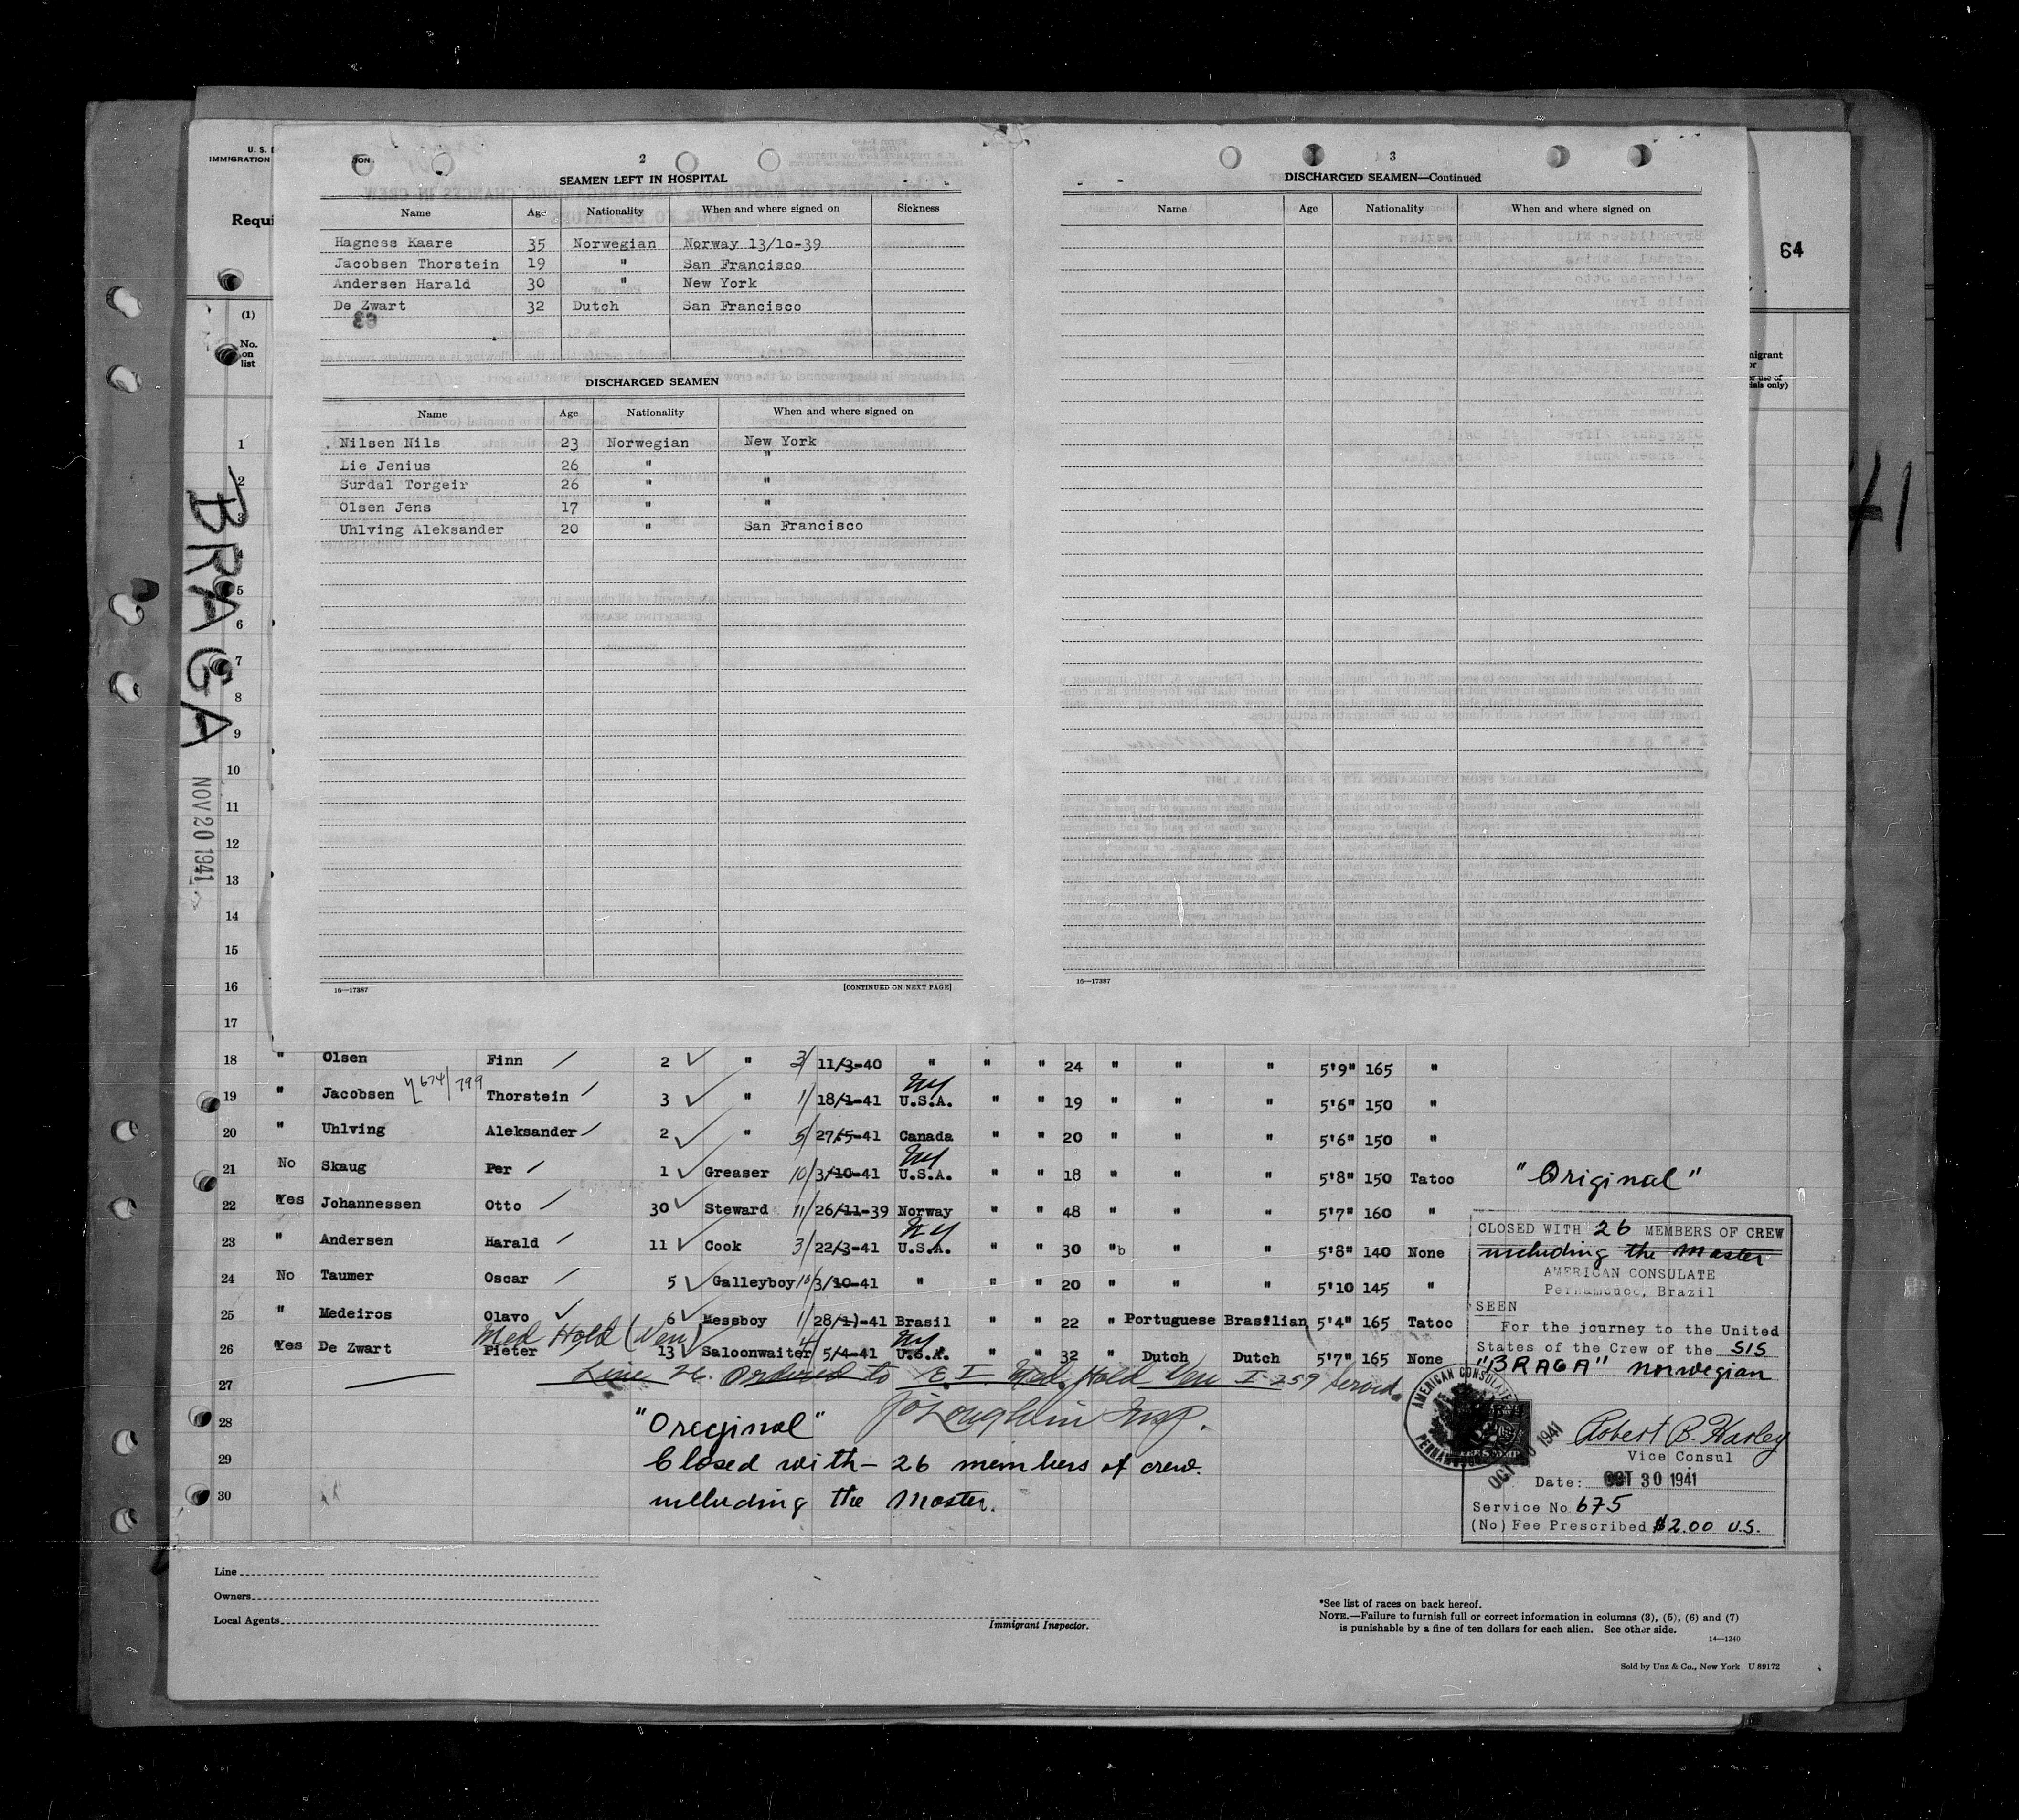 U. S.
IMMIGRATION
Requi
2
SEAMEN LEFT IN HOSPITAL
Name Age Nationality When and where signed on Sickness
Hagness Kaare 35 Norwegian Norway 13/10-39
Jacobsen Thorstein 19 " San Francisco
Andersen Harald 30 " New York
De Zwart 32 Dutch San Francisco
63
DISCHARGED SEAMEN
Name Age Nationality When and where signed on
Nilsen Nils 23 Norwegian New York
Lie Jenius 26 " "
Surdal Torgeir 26 " "
Olsen Jens 17 " "
Uhlving Aleksander 20 " San Francisco
16—17387 [CONTINUED ON NEXT PAGE]
3
DISCHARGED SEAMEN—Continued
Name Age Nationality When and where signed on
16—17387
64
(1)
No. on list
1
2
3
5
6
7
8
9
10
11
12
13
14
15
16
17
BRAGA
NOV 20 1941
41
18 " Olsen Finn 2 " 3/ 11/3-40 " " " 24 " " " 5'9" 165 "
19 " Jacobsen 674/799 Thorstein 3 " 1/ 18/1-41 NY U.S.A. " " 19 " " " 5'6" 150 "
20 " Uhlving Aleksander 2 " 5/ 27/5-41 Canada " " 20 " " " 5'6" 150 "
21 No Skaug Per 1 Greaser 10/ 3/10-41 NY U.S.A. " " 18 " " " 5'8" 150 Tatoo
22 Yes Johannessen Otto 30 Steward 11/ 26/11-39 Norway " " 48 " " " 5'7" 160 "
23 " Andersen Harald 11 Cook 3/ 22/3-41 NY U.S.A. " " 30 "b " " 5'8" 140 None
24 No Taumer Oscar 5 Galleyboy 10/ 3/10-41 " " " 20 " " " 5'10 145 "
25 " Medeiros Olavo 6 Messboy 1/ 28/1)-41 Brasil " " 22 " Portuguese Brasilian 5'4" 165 Tatoo
Med Hold (Ven)
26 Yes De Zwart Pieter 13 Saloonwaiter 4/ 5/4-41 NY U.S.A. " " 32 " Dutch Dutch 5'7" 165 None
27 Line 26. Ordered to E. I. Med. Hold Ven I-259 served
28 "Oreginal" J O'Loughlin Insp.
29 Closed with - 26 members of crew.
30 including the Master.
"Original"
CLOSED WITH 26 MEMBERS OF CREW
including the Master
AMERICAN CONSULATE
Pernambuco, Brazil
SEEN
For the journey to the United
States of the Crew of the S/S
"BRAGA" norwegian
Robert B. Harley
Vice Consul
Date: OCT 30 1941
Service No. 675
(No) Fee Prescribed $2.00 U.S.
AMERICAN CONSULATE
OCT 30 1941
Line
Owners
Local Agents
Immigrant Inspector.
*See list of races on back hereof.
NOTE.—Failure to furnish full or correct information in columns (3), (5), (6) and (7)
is punishable by a fine of ten dollars for each alien. See other side.
14—1240
Sold by Unz & Co., New York U 89172